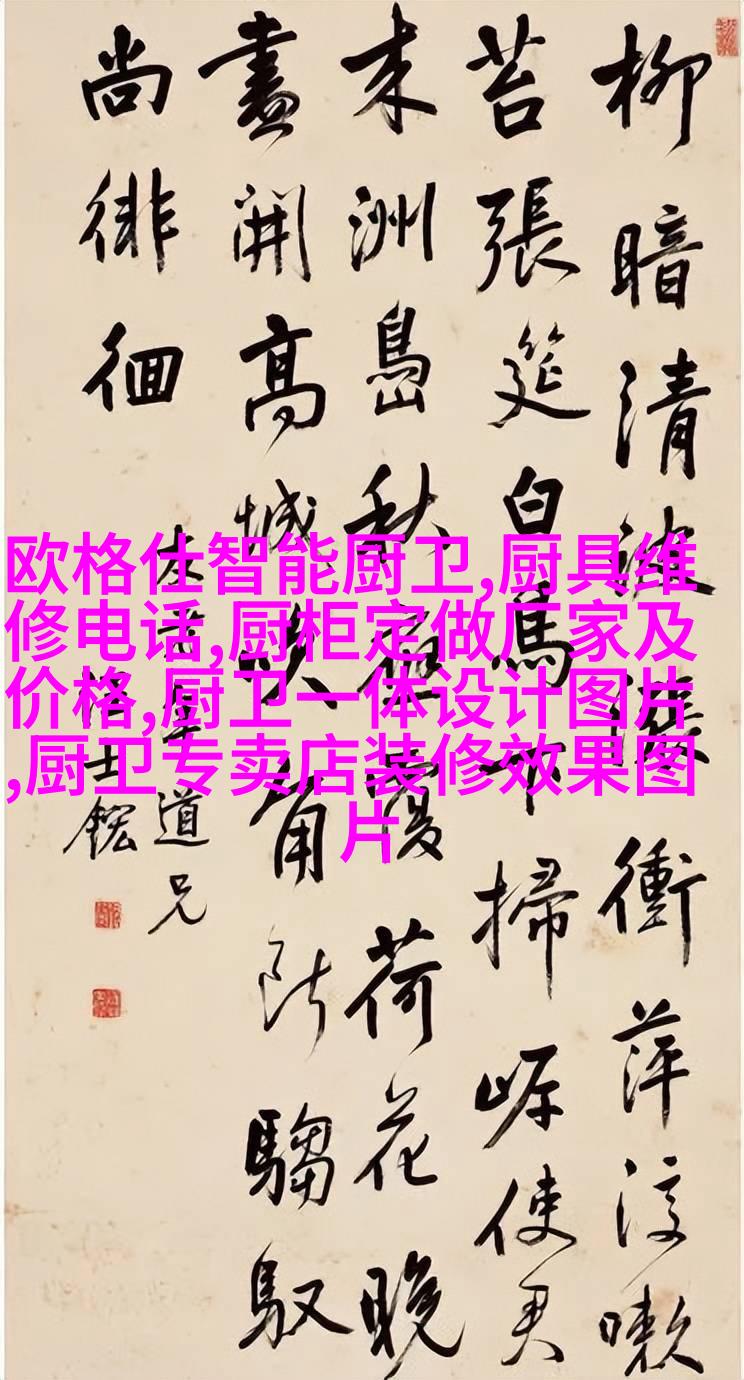 柳暗清波漲衝萍嗽
苔張筵白鳥下掃岸使君
来洲島秋應覆荷花晚
盡開高城吹角断騶馭
尚徘徊
道兄
欧格仕智能厨卫,厨具维
修电话,厨柜定做厂家及
价格,厨卫一体设计图片
,厨卫专卖店装修效果图
片